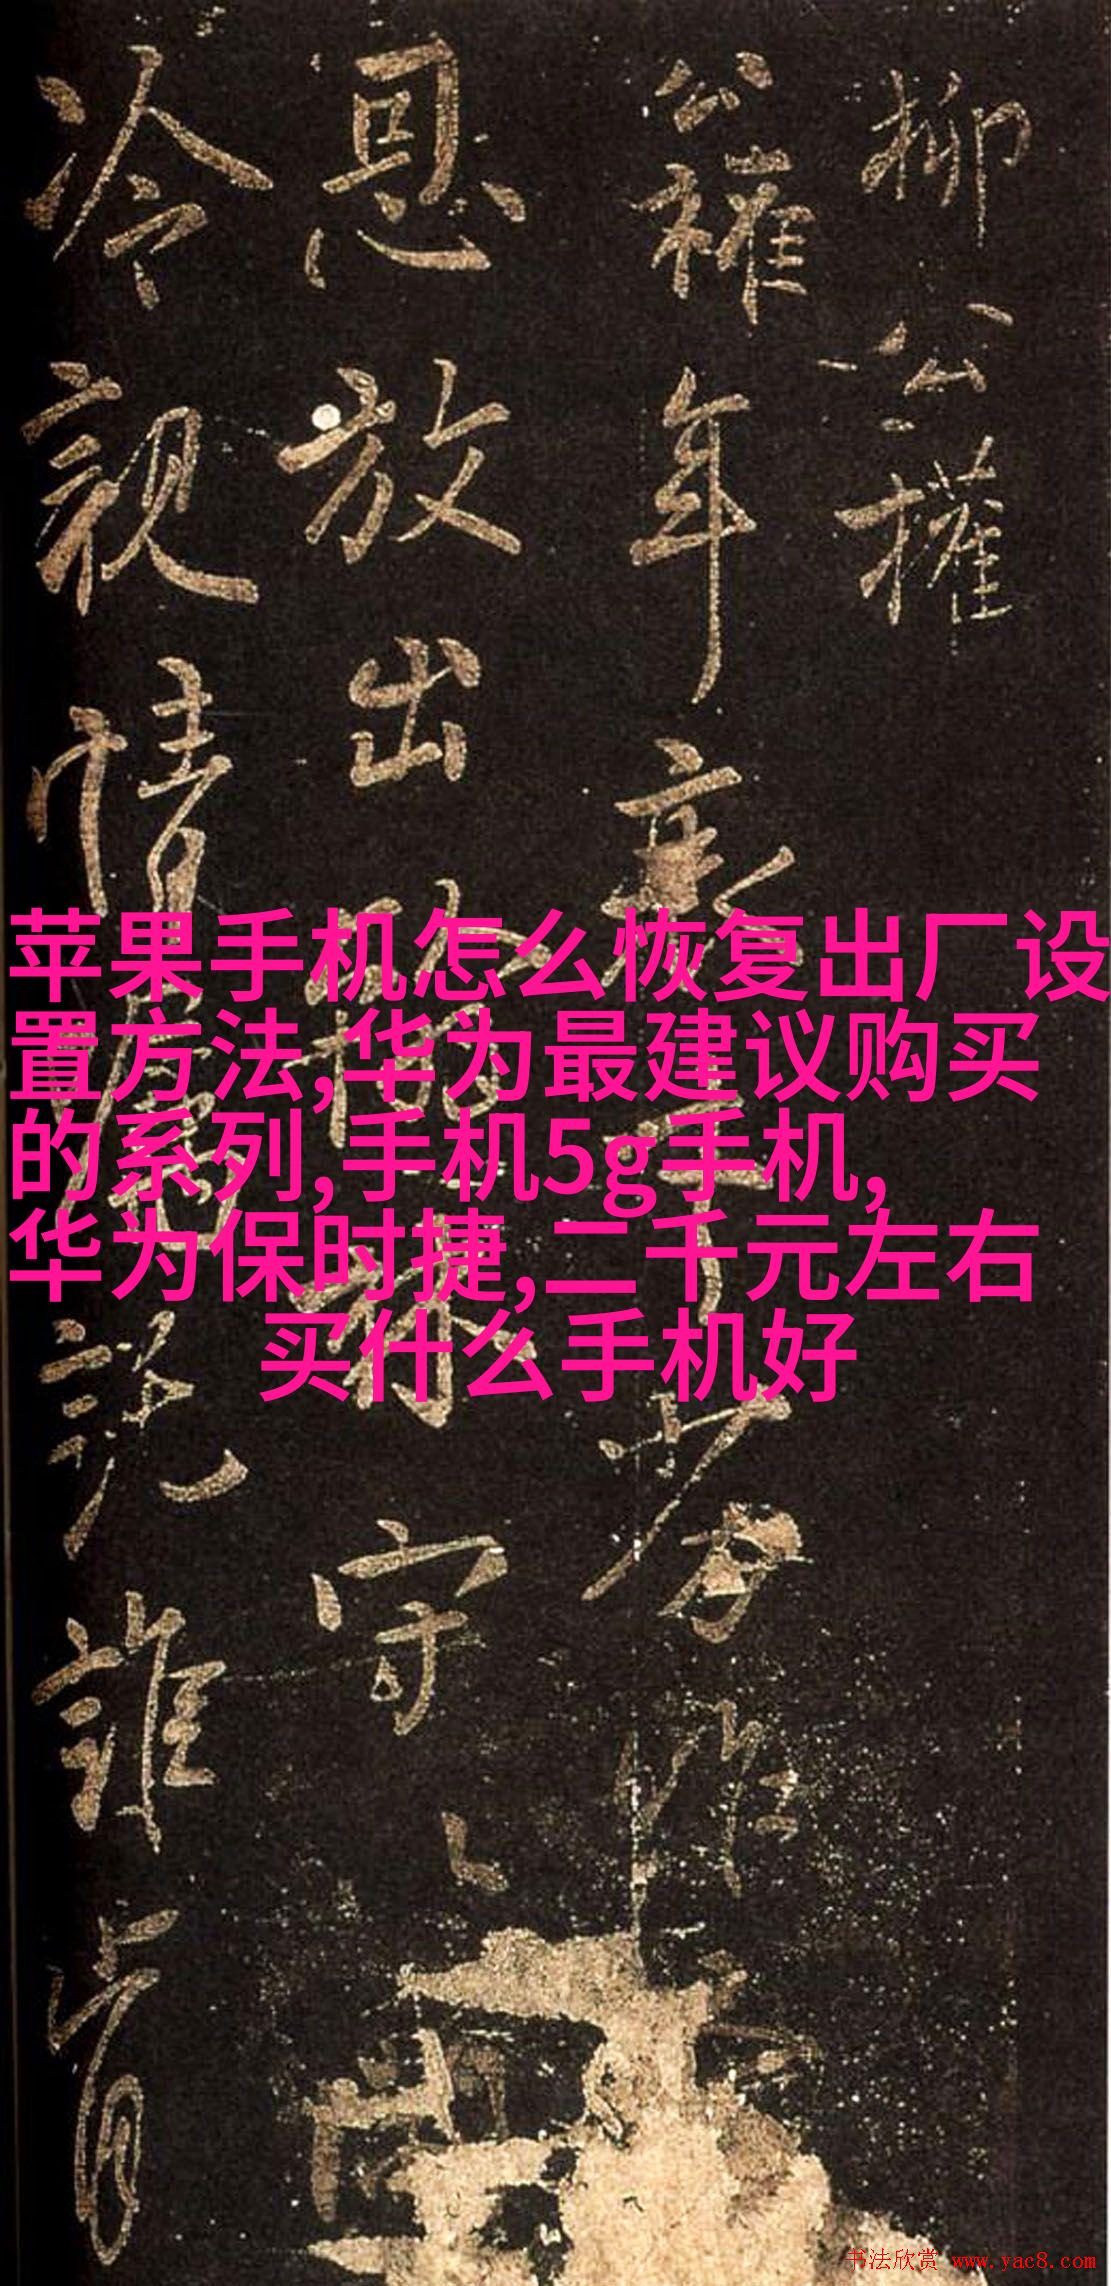 柳公權
公權年衰才劣昨
恩放出翰林守
冷親情囑託誰肯
苹果手机怎么恢复出厂设
置方法,华为最建议购买
的系列,手机5g手机,
华为保时捷,二千元左右
买什么手机好
书法欣赏 www.yac8.com